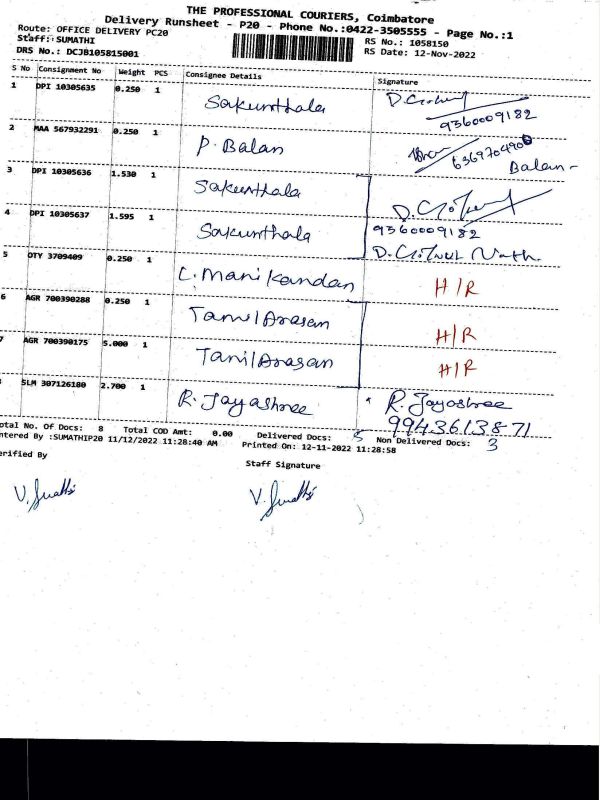 THE PROFESSIONAL COURIERS, Coimbatore
Delivery Runsheet - P20 - Phone No.:0422-3505555 - Page No.:1
Route: OFFICE DELIVERY PC20
Staff: SUMATHI
RS No.: 1058150
DRS No.: DCJB105815001
RS Date: 12-Nov-2022
S No Consignment No Weight PCS Consignee Details Signature
1 DPI 10305635 0.250 1 Sakunthala
9360009182
2 MAA 567932291 0.250 1 P. Balan 6369704900
Balan
3 DPI 10305636 1.530 1 Sakunthala
4 DPI 10305637 1.595 1 Sakunthala 9360009182
5 OTY 3709409 0.250 1 C. Manikandan H/R
6 AGR 700390288 0.250 1 TamilArasan H/R
7 AGR 700390175 5.000 1 TamilArasan H/R
SLM 307126180 2.700 1 R. Jayashree R. Jayashree
9943613871
otal No. Of Docs: 8 Total COD Amt: 0.00 Delivered Docs: 5 Non Delivered Docs: 3
ntered By :SUMATHIP20 11/12/2022 11:28:40 AM Printed On: 12-11-2022 11:28:58
erified By Staff Signature